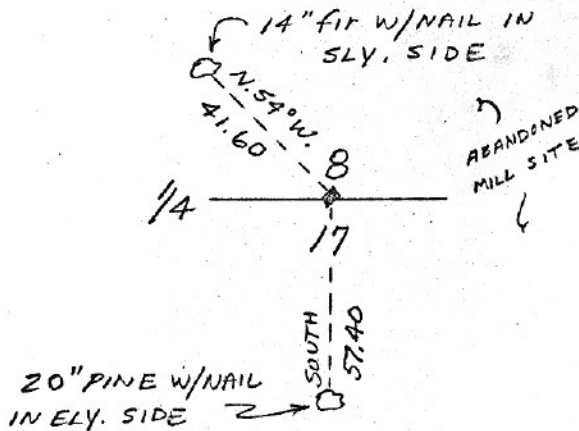 14" fir W/NAIL IN
SLY. SIDE
N.54°W.
41.60
ABANDONED
MILL SITE
8
1/4
17
SOUTH
57.40
20" PINE W/NAIL
IN ELY. SIDE